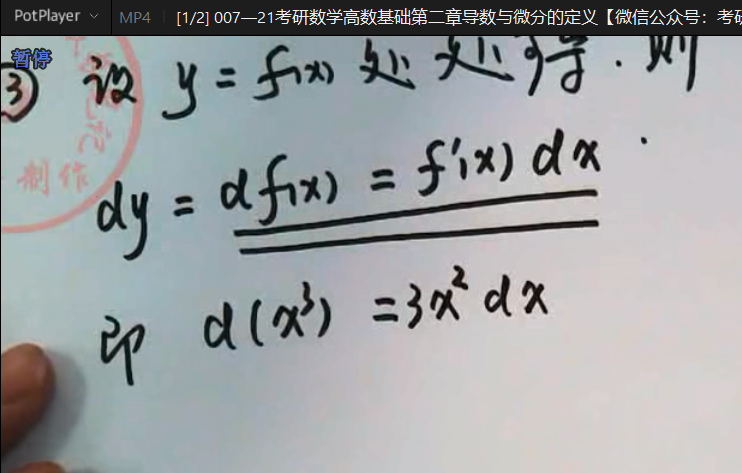 PotPlayer MP4 [1/2] 007—21考研数学高数基础第二章导数与微分的定义【微信公众号：考研
暂停
③ 设 y = f(x) 处处可导. 则
制作
dy = df(x) = f'(x) dx .
即 d(x³) = 3x² dx